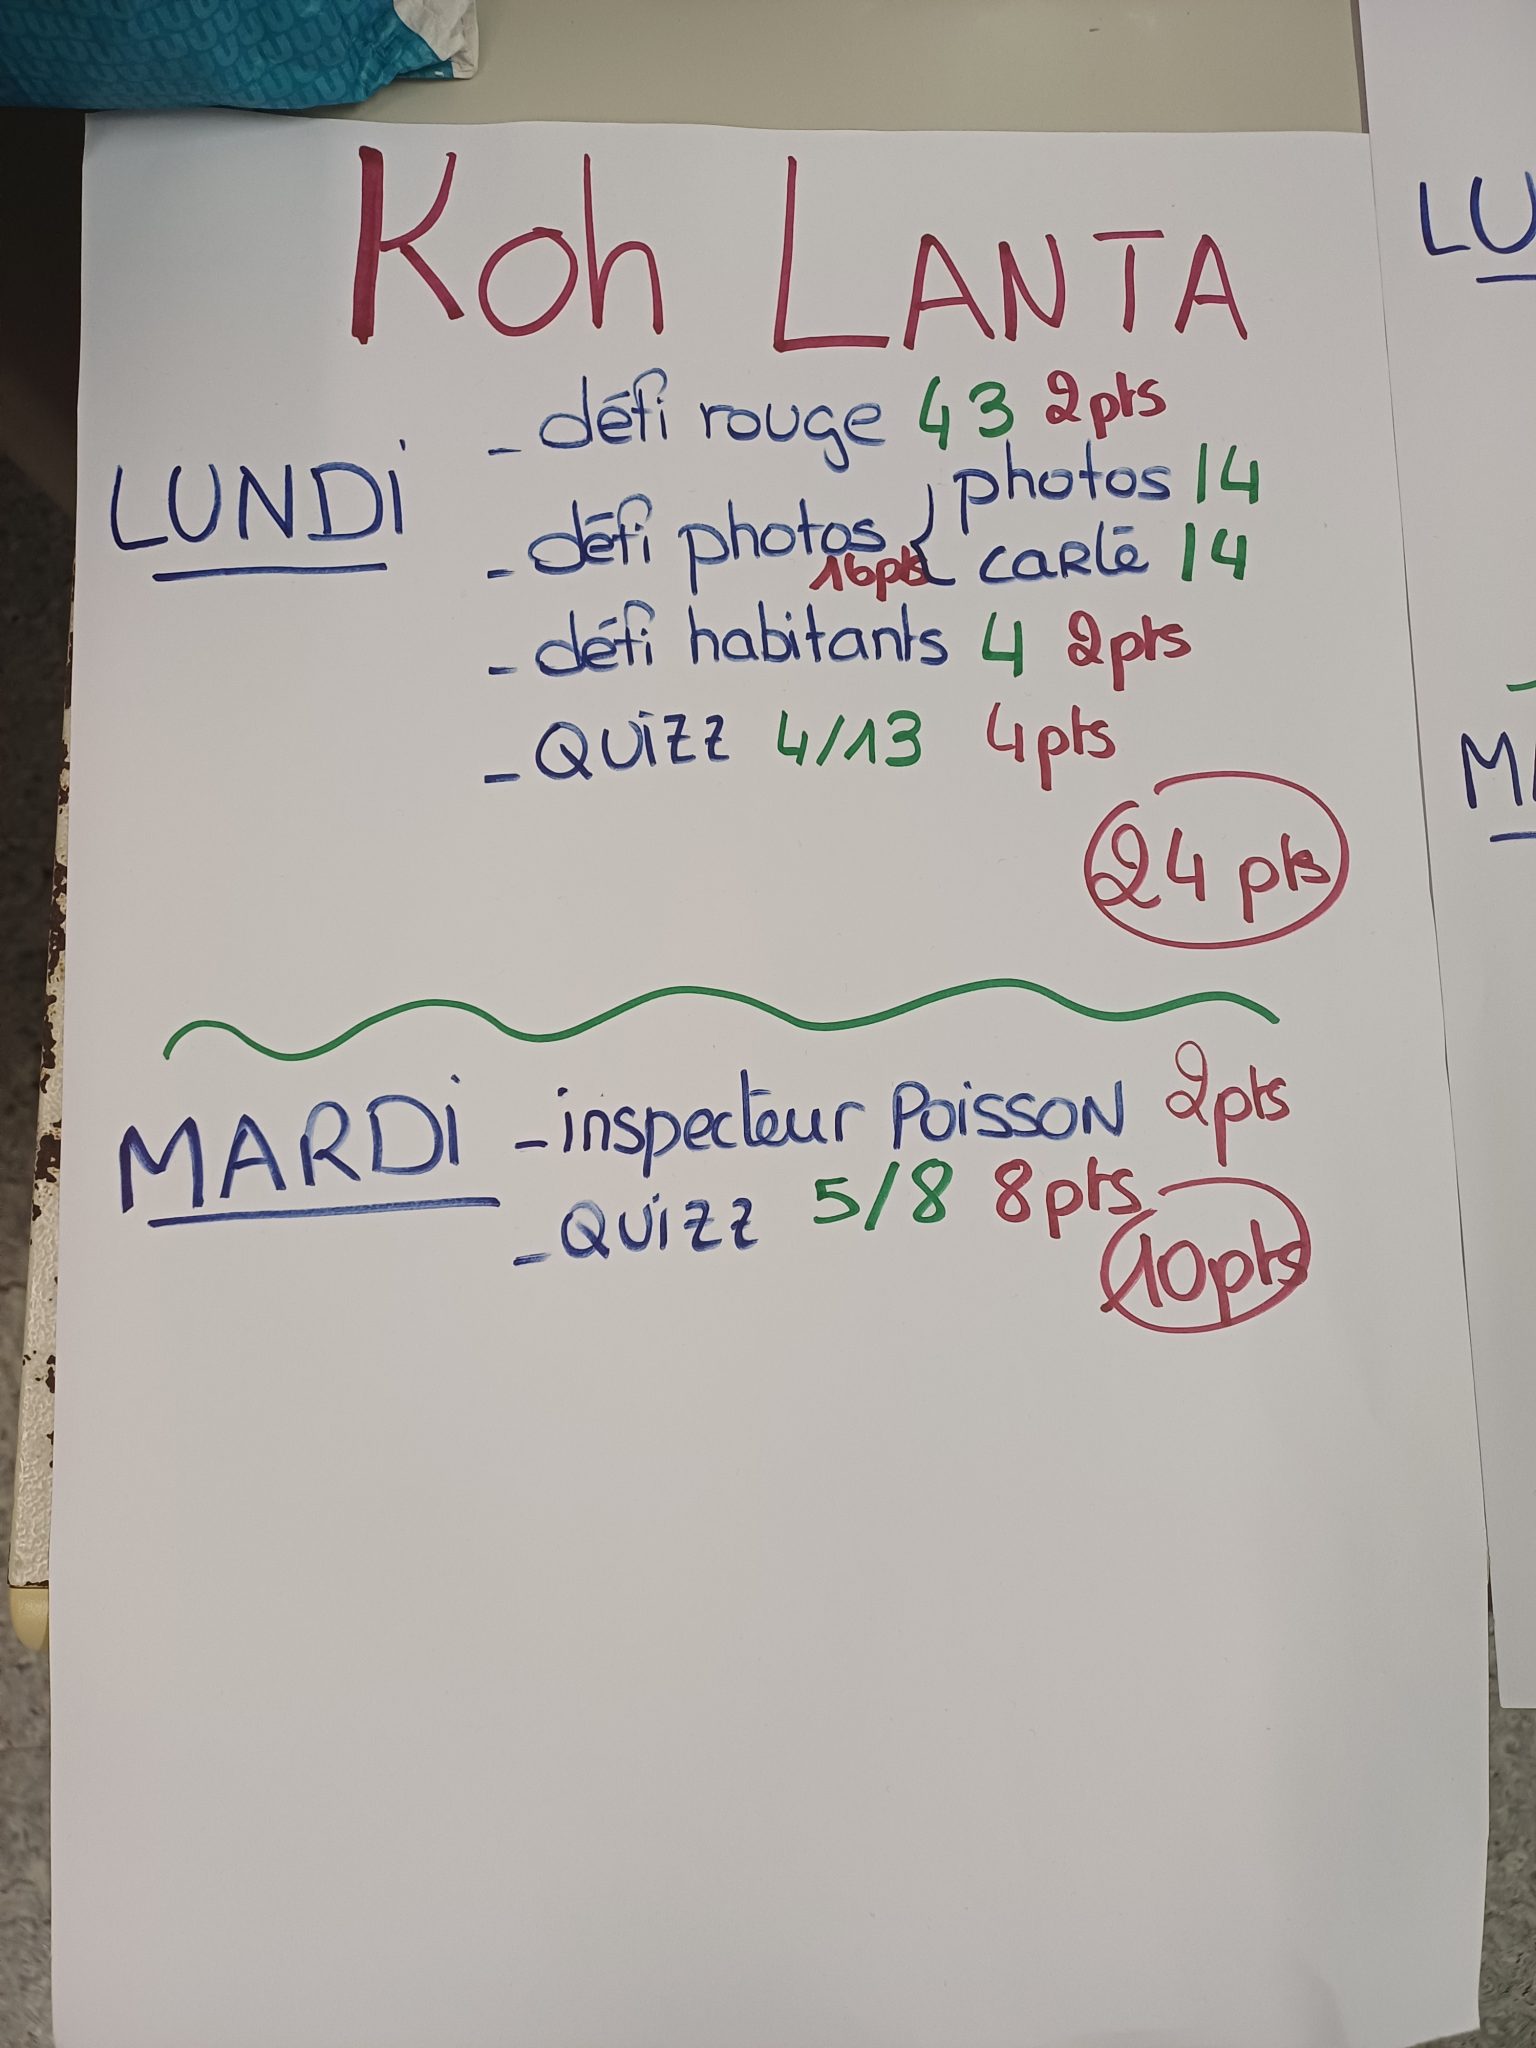 Koh LANTA
LUNDi
- défi rouge 43 2pts
- défi photos { photos 14
16pts carte 14
- défi habitants 4 2pts
- QUiZZ 4/13 4pts
24 pts
MARDi
- inspecteur POiSSON 2pts
- QUiZZ 5/8 8pts
10pts
LU
MA